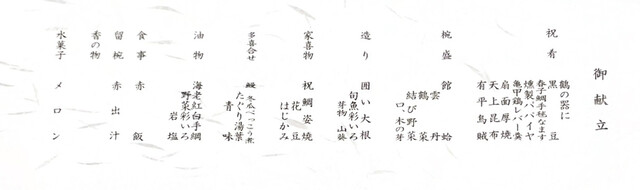 御献立
祝肴
鶴の器に
黒豆
春子鯛手毬なます
燻製パパイヤ
亀甲鶏レバー羹
扇面厚焼
天上昆布
有平烏賊
椀盛
蛤
鶴菜
結び野菜
口、木の芽
造り
囲い大根
旬魚彩いろ
芽物 山葵
家喜物
祝鯛姿焼
花豆
はじかみ
多喜合せ
冬瓜べっこう煮
たぐり湯葉
青味
油物
海老紅白手綱
野菜彩いろ
岩塩
食事
赤飯
留椀
赤出汁
香の物
水菓子
メロン